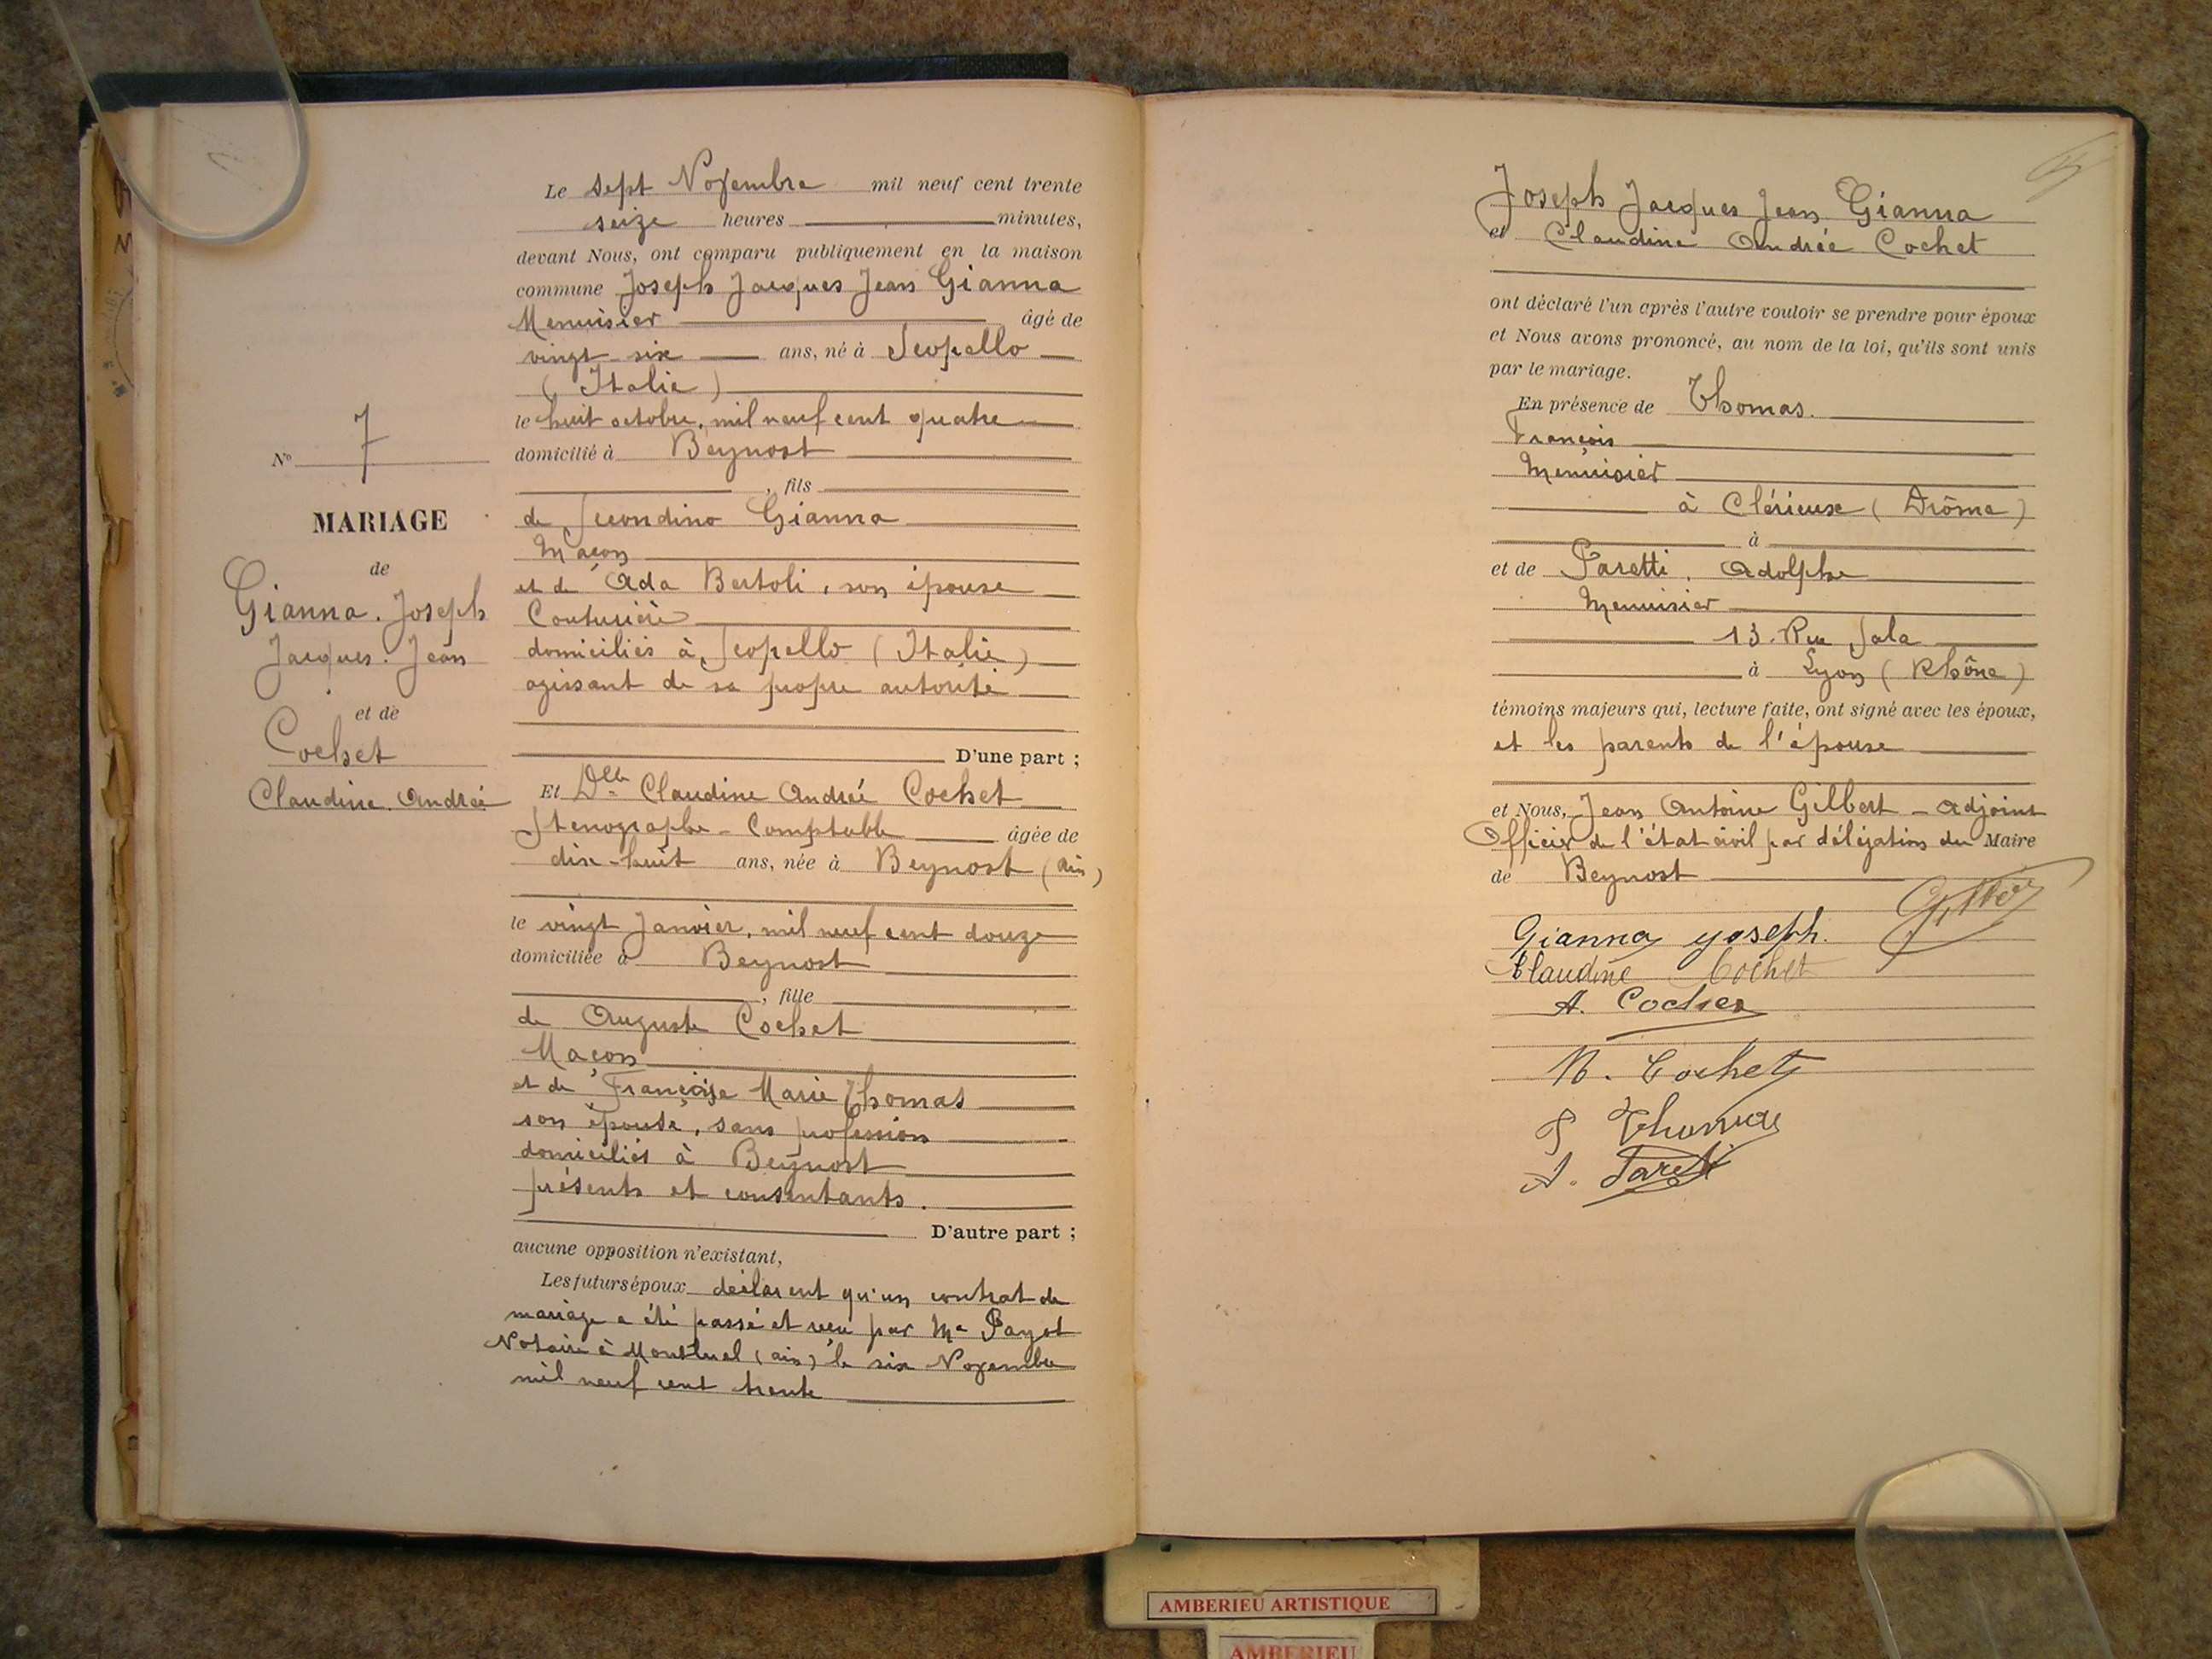 N° 7
MARIAGE
de
Gianna. Joseph
Jacques. Jean
et de
Cochet
Claudine. Andrée
Le sept Novembre mil neuf cent trente
seize heures minutes,
devant Nous, ont comparu publiquement en la maison
commune Joseph Jacques Jean Gianna
Menuisier âgé de
vingt-six ans, né à Scopello
(Italie)
le huit octobre, mil neuf cent quatre
domicilié à Beynost
, fils
de Secondino Gianna
Maçon
et de Ada Bertoli, son épouse
Couturière
domiciliés à Scopello (Italie)
agissant de sa propre autorité
D'une part ;
Et Dlle Claudine Andrée Cochet
Stenographe-Comptable âgée de
dix-huit ans, née à Beynost (Ain)
le vingt Janvier, mil neuf cent douze
domiciliée à Beynost
, fille
de Auguste Cochet
Maçon
et de Françoise Marie Thomas
son épouse, sans profession
domiciliés à Beynost
présents et consentants.
D'autre part ;
aucune opposition n'existant,
Les futurs époux déclarent qu'un contrat de
mariage a été passé et reçu par Me Payet
Notaire à Montluel (ain) le six Novembre
mil neuf cent trente
Joseph Jacques Jean Gianna
et Claudine Andrée Cochet
ont déclaré l'un après l'autre vouloir se prendre pour époux
et Nous avons prononcé, au nom de la loi, qu'ils sont unis
par le mariage.
En présence de Thomas.
François
Menuisier
à Clérieux (Drôme)
à
et de Paretti. Adolphe
Menuisier
13. Rue Sala
à Lyon (Rhône)
témoins majeurs qui, lecture faite, ont signé avec les époux,
et les parents de l'épouse
et Nous, Jean Antoine Gilbert - adjoint
Officier de l'état civil par délégation du Maire
de Beynost
Gilbert
Gianna yoseph.
Claudine Cochet
A. Cochet
M. Cochet
F Thomas
A. Paretti
AMBERIEU ARTISTIQUE
AMBERIEU